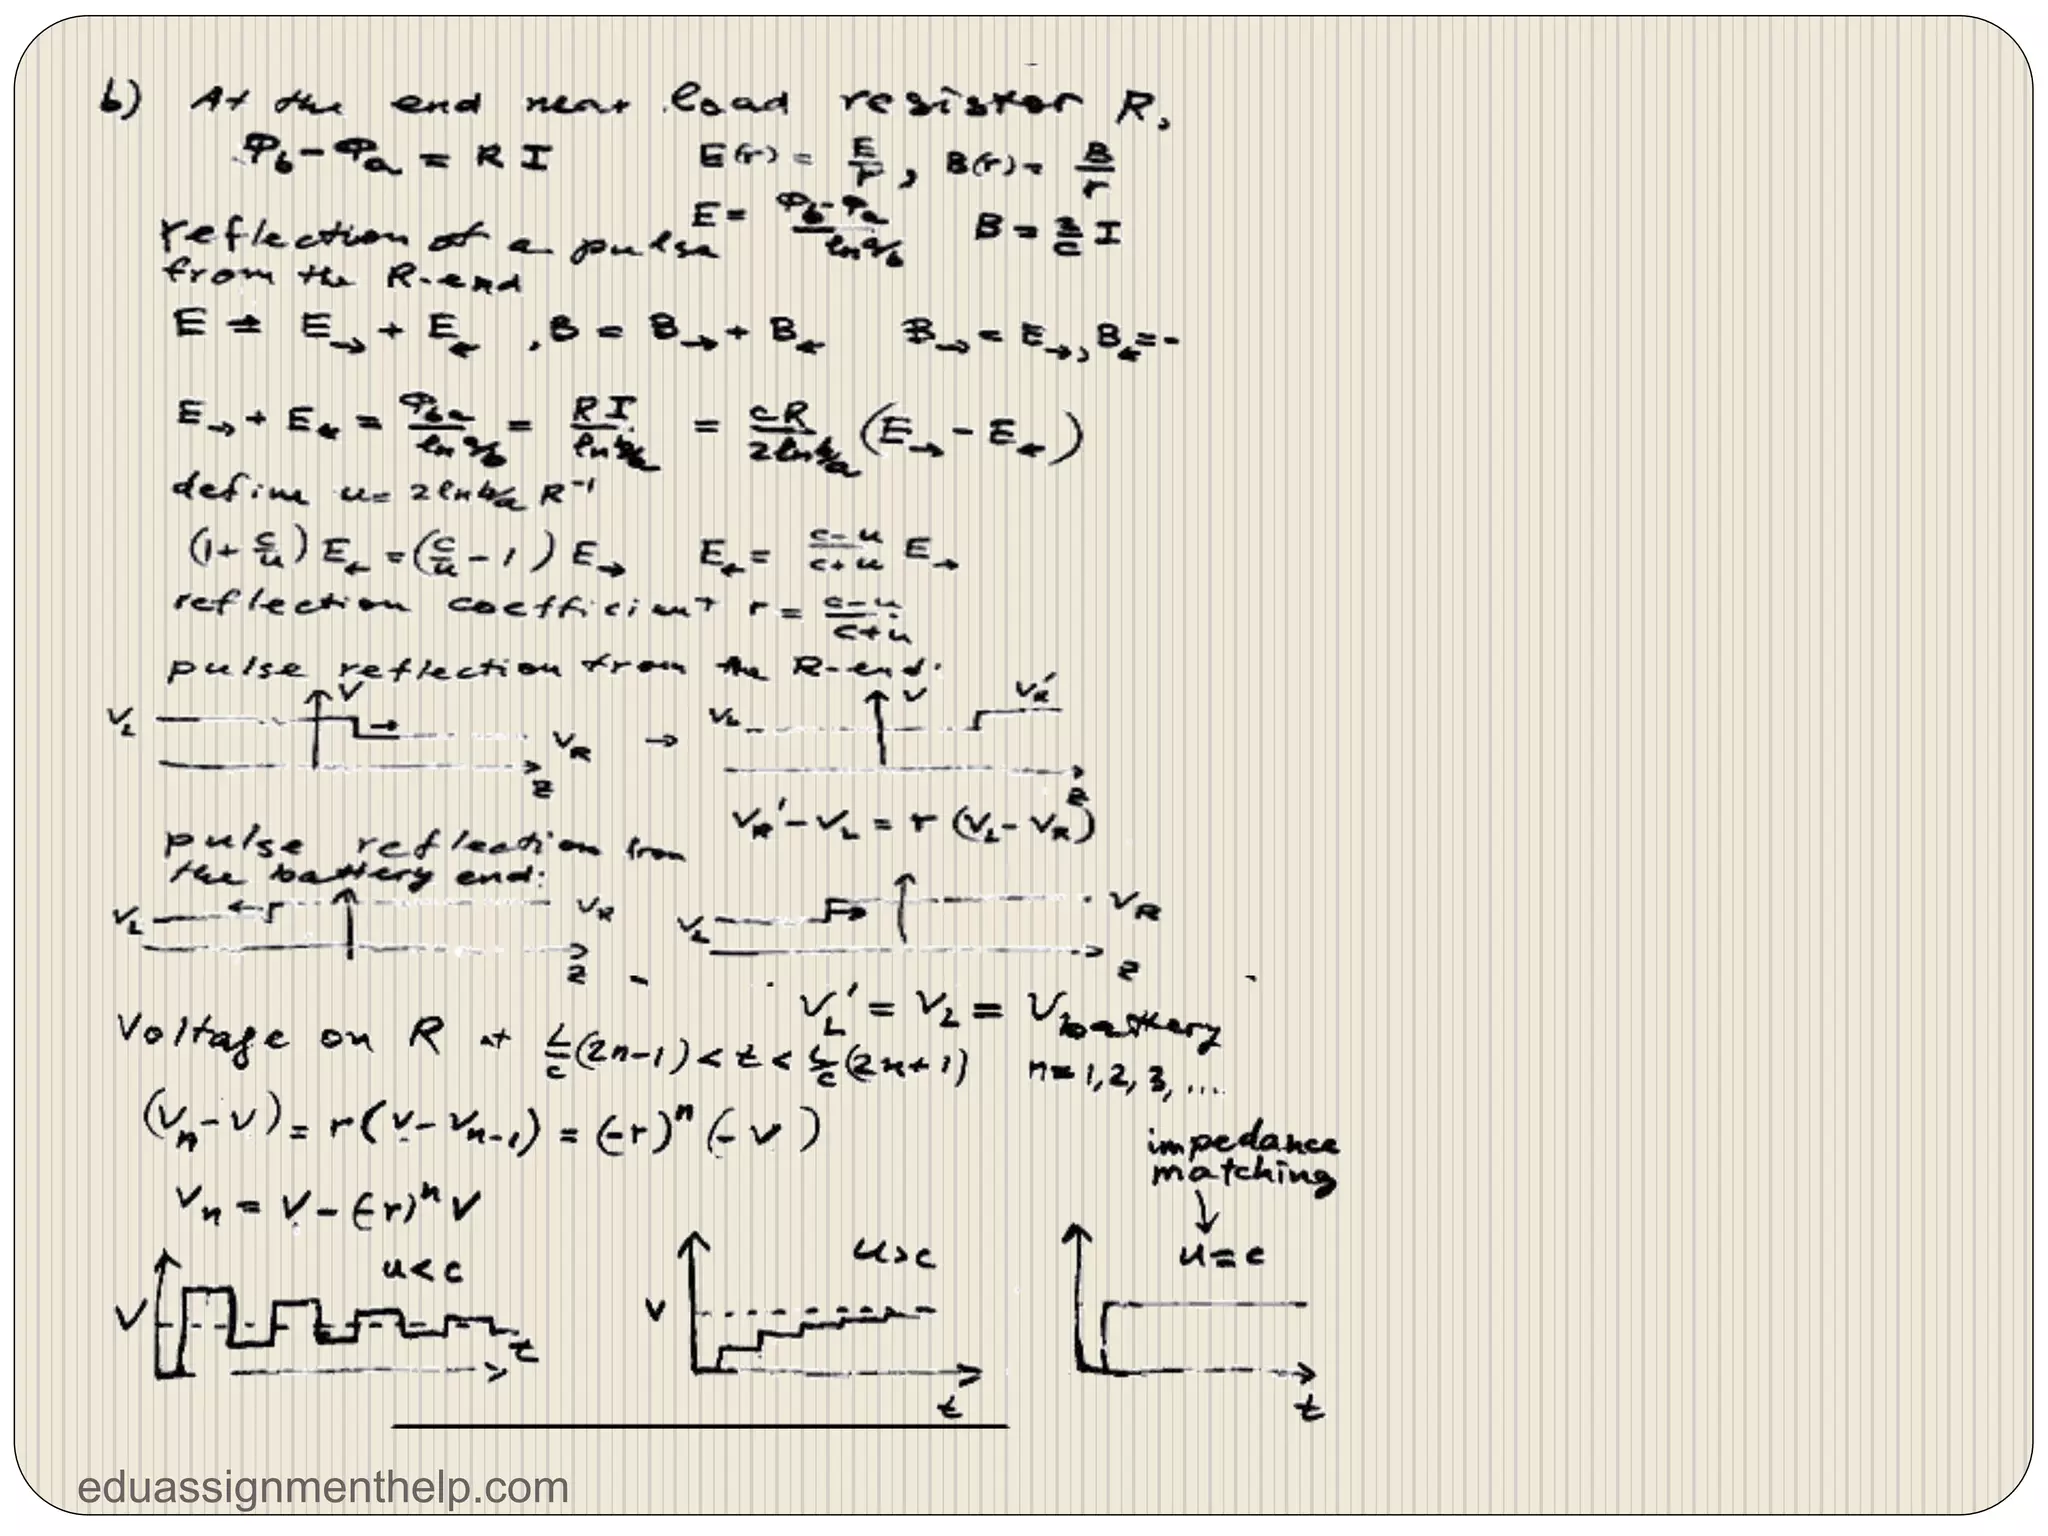 b) At the end near load resistor R,
Φb - Φa = R I    E(r) = E/r, B(r) = B/r
E = (Φb - Φa)/(ln a/b)    B = 2/c I
reflection of a pulse
from the R-end
E = E→ + E←, B = B→ + B←    B→ = E→, B← = -
E→ + E← = Φba/(ln a/b) = RI/(ln b/a) = cR/(2 ln b/a) (E→ - E←)
define u = 2 ln b/a R⁻¹
(1 + c/u) E← = (c/u - 1) E→    E← = (c-u)/(c+u) E→
reflection coefficient r = (c-u)/(c+u)
pulse reflection from the R-end:
V    V    VR'
VL    VR    →    VL
z    z
VR' - VL = r (VL - VR)
pulse reflection from
the battery end:
VL    VR    VL    VR
z    z
VL' = VL = Vbattery
Voltage on R at L/c (2n-1) < t < L/c (2n+1)    n = 1, 2, 3, ...
(Vn - V) = r (V - Vn-1) = (-r)ⁿ (-V)
impedance
matching
Vn = V - (-r)ⁿ V
u < c    u > c    u = c
V    V
t    t    t
eduassignmenthelp.com